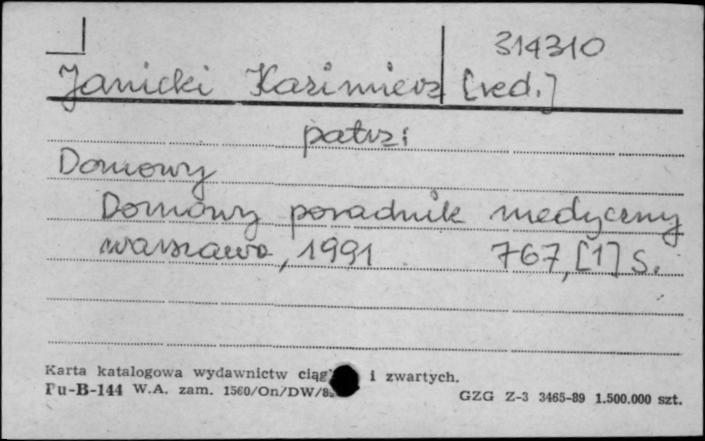 314310
Janicki Kazimierz [red.]
patrz:
Domowy
Domowy poradnik medyczny
Warszawa, 1991 767, [1] s.
Karta katalogowa wydawnictw i zwartych.
Pu-B-144 W.A. zam. GZG Z-3 3465-89 1.500.000 szt.